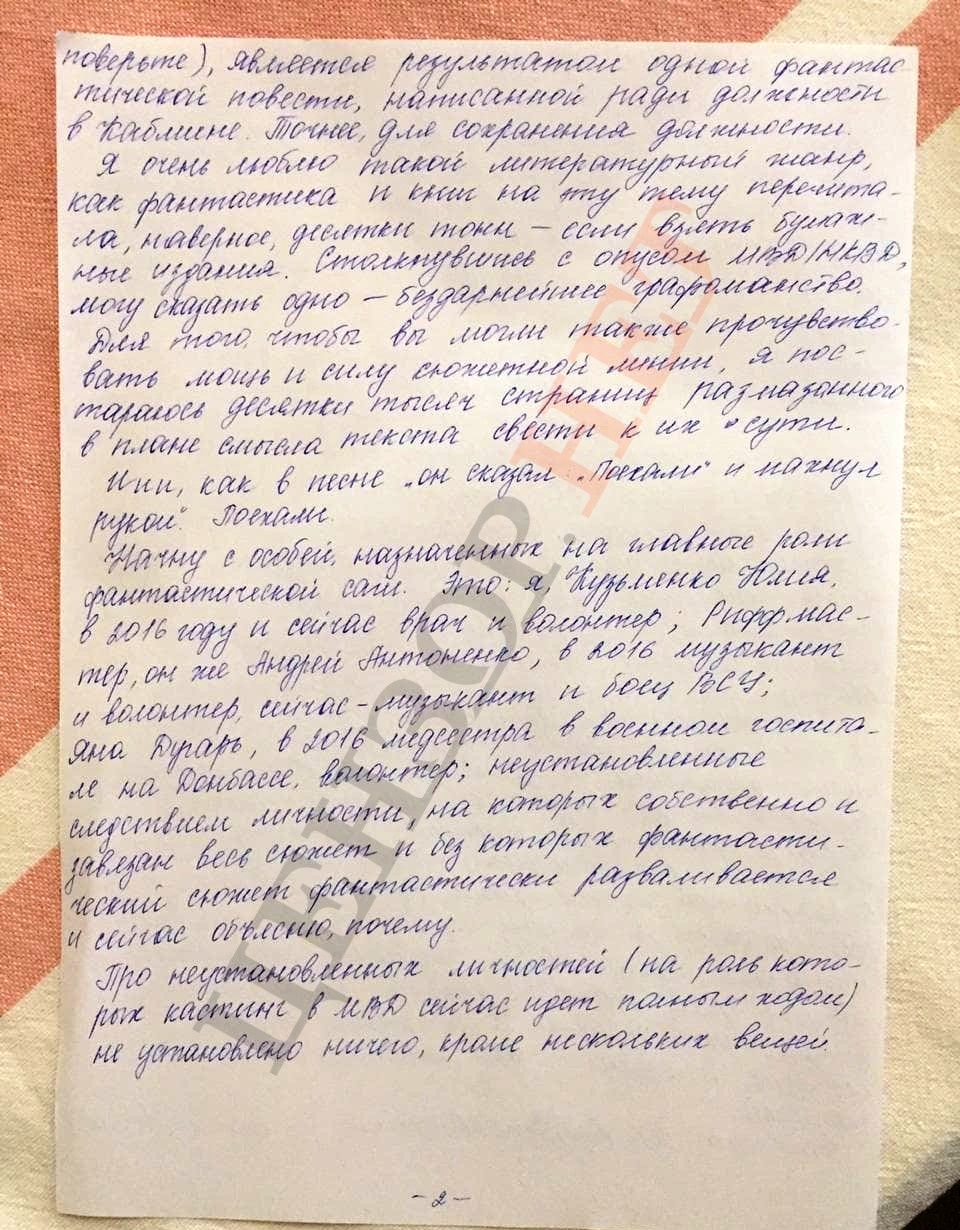 поверьте), является результатом одной фантас
тической повести, написанной ради должности
в Кабмине. Точнее, для сохранения должности.
Я очень люблю такой литературный жанр,
как фантастика и книг на эту тему перечита-
ла, наверное, десятки тонн – если взять бумаж-
ные издания. Столкнувшись с опусом МВД/НКВД,
могу сказать одно – бездарнейшее графоманство.
Для того, чтобы вы могли также прочувство-
вать мощь и силу сюжетной линии, я пос-
тараюсь десятки тысяч страниц размазанного
в плане смысла текста свести к их сути.
Иии, как в песне „он сказал: „Поехали" и махнул
рукой". Поехали.
Начну с особей, назначенных на главные роли
фантастической саги. Это: я, Кузьменко Юлия,
в 2016 году и сейчас врач и волонтер; Риффмас-
тер, он же Андрей Антоненко, в 2016 музыкант
и волонтер, сейчас – музыкант и боец ВСУ;
Яна Дугарь, в 2016 медсестра в военном госпита-
ле на Донбассе, волонтер; неустановленные
следствием личности, на которых собственно и
завязан весь сюжет и без которых фантасти-
ческий сюжет фантастически разваливается
и сейчас объясню, почему.
Про неустановленных личностей (на роль кото-
рых кастинг в МВД сейчас идет полным ходом)
не установлено ничего, кроме нескольких вещей.
- 2 -
ЦЕНЗОР.НЕТ